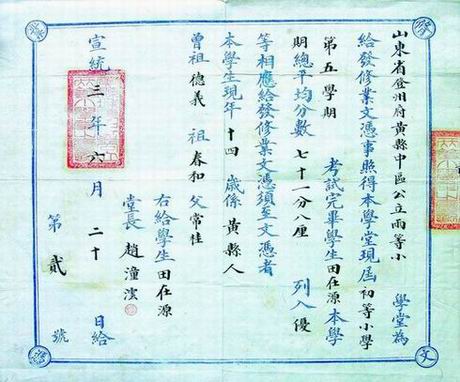 山東省登州府黃縣中區公立兩等小 學堂為
給發修業文憑事照得本學堂現屆初等小學
第五學期 考試完畢學生田在源本學
期總平均分數 七十一分八厘 列入優
等相應給發修業文憑須至文憑者
本學生現年十四歲係黃縣人
曾祖德義 祖春和 父常桂
右給學生田在源
堂長 趙潼
宣統三年六月二十日給
第貳號
文